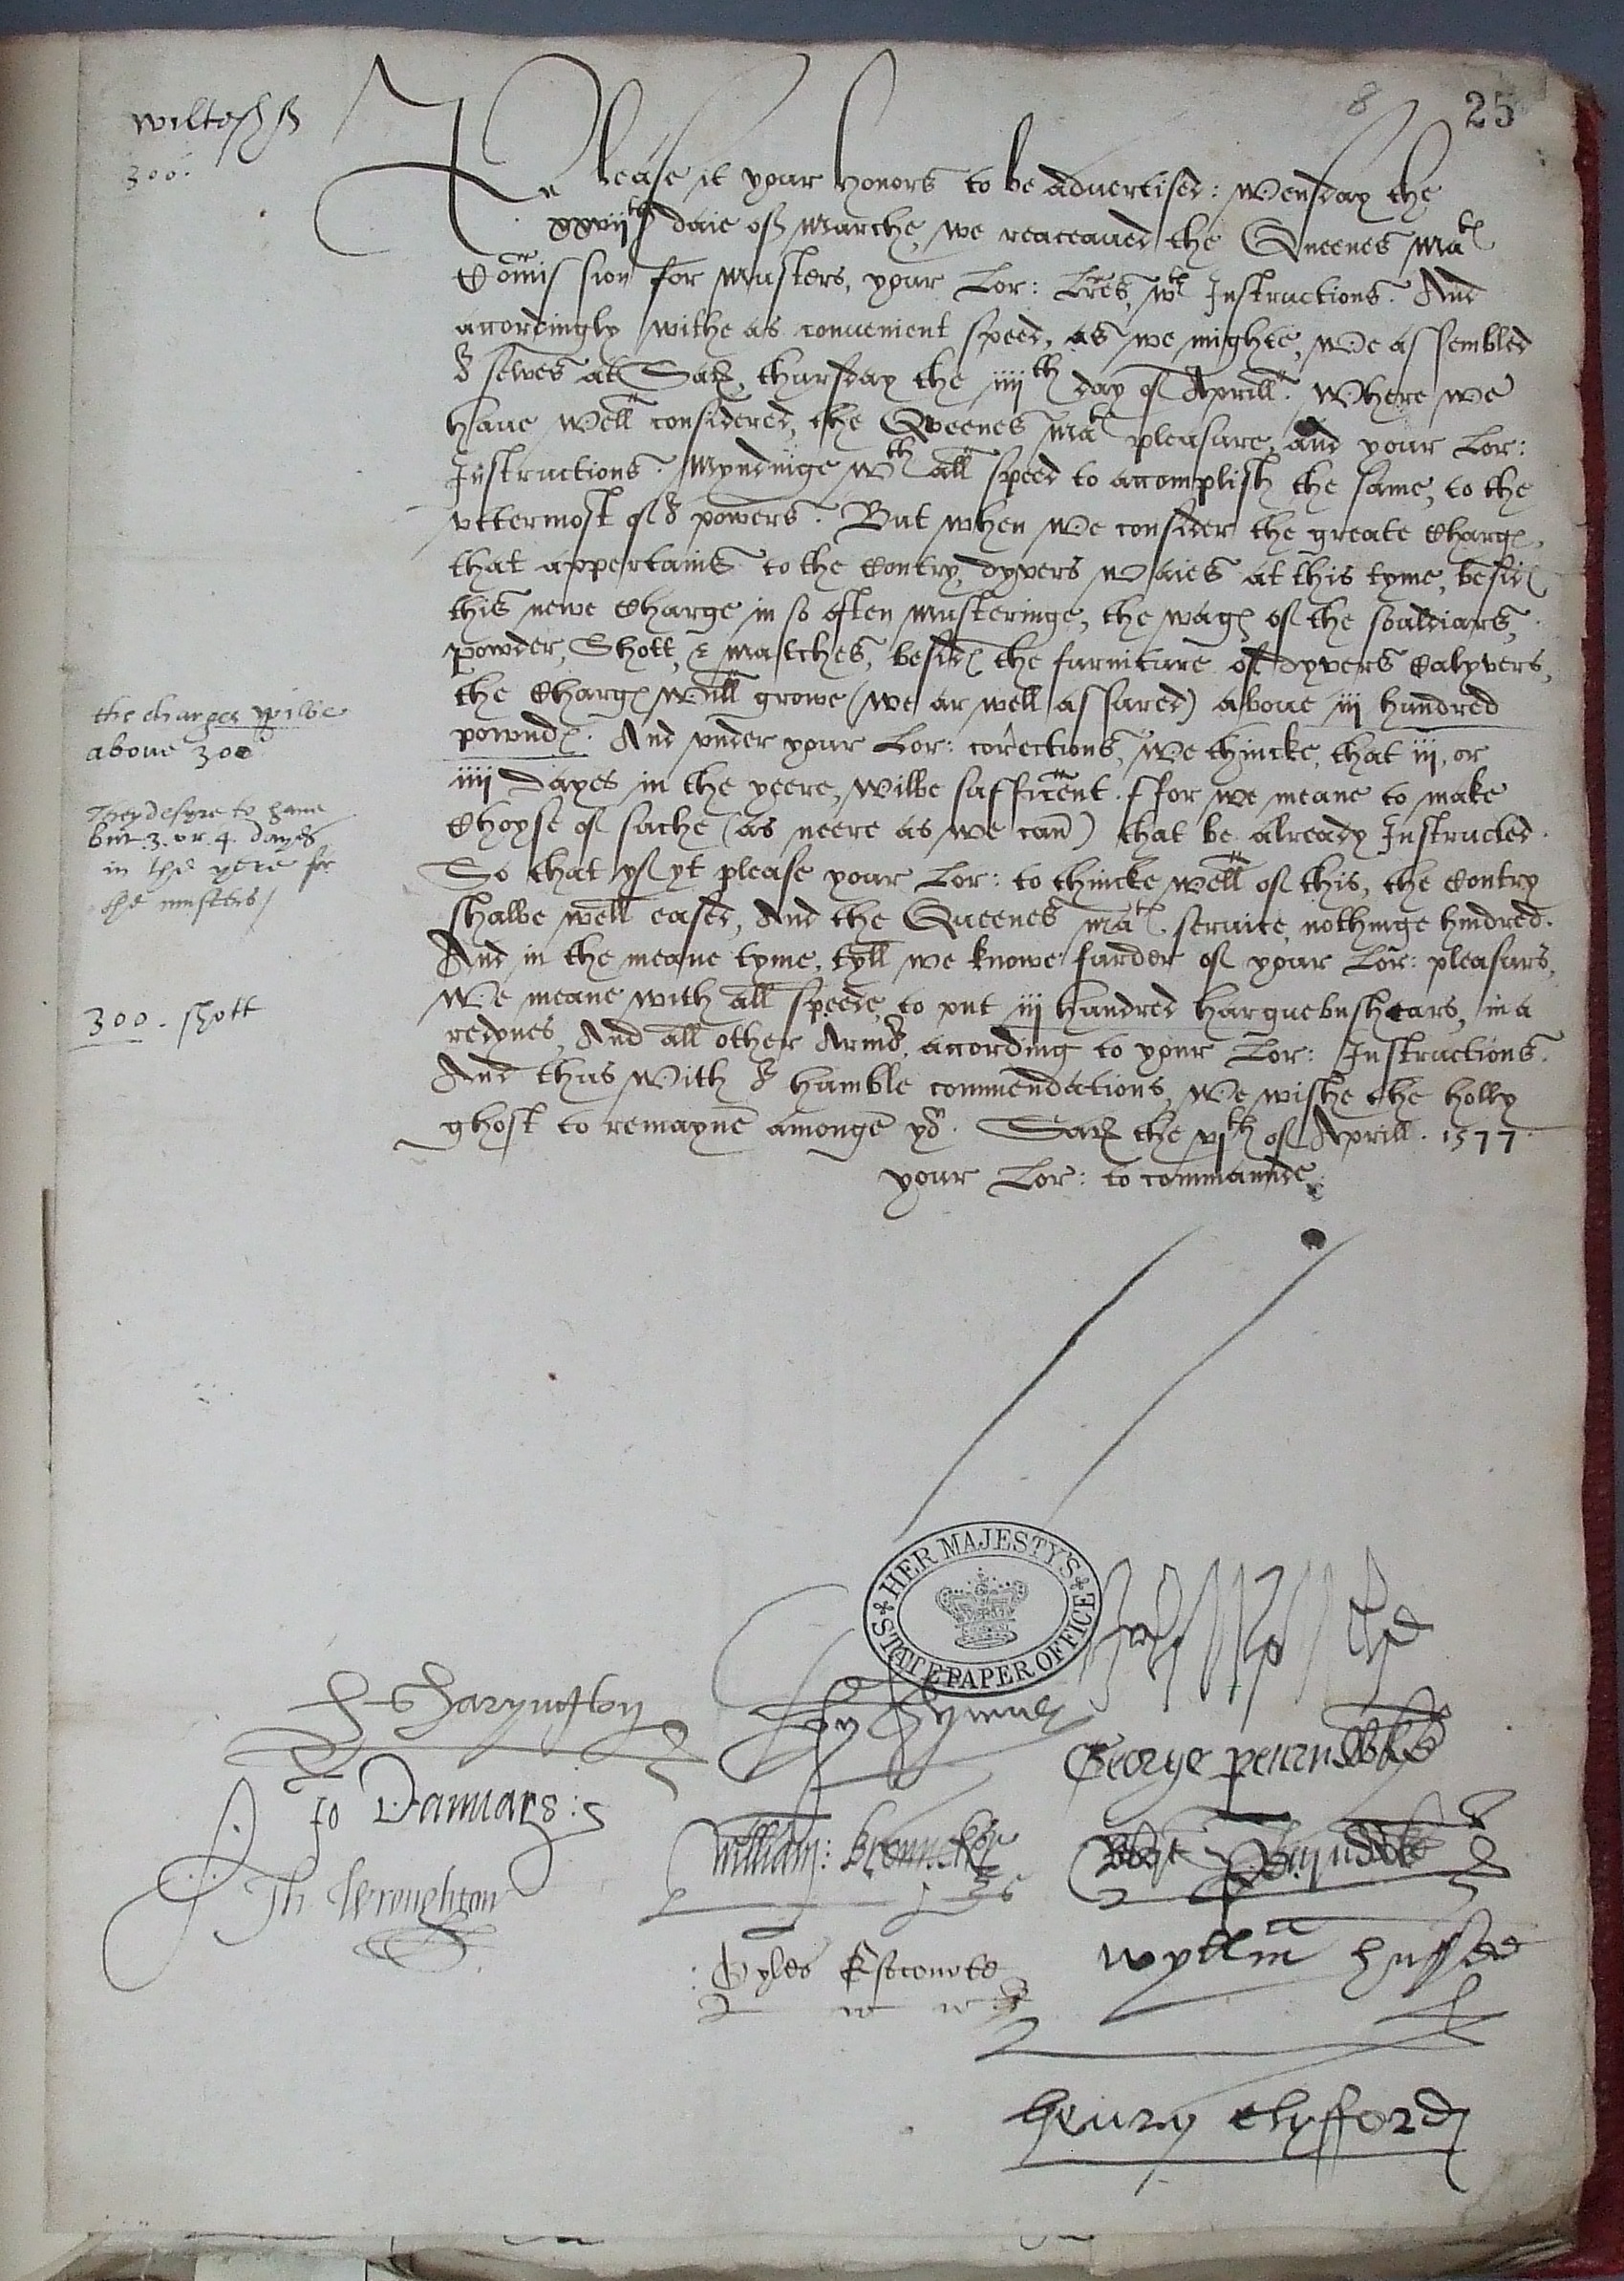 Wiltesh
300.
8
25
Please it your honors to be aduertised: Wensday the
xxvijth daie of Marche, we reaceaued the Queenes Matꝭ
Com̃ission for Musters, your Lor: Lr̃es, wth Instructions. And
accordingly withe as conuenient speed, as we mighte, we assembled
or selves at Saꝝ, thursday the iiijth day of Aprill. Where we
haue well considered, the Queenes Matꝭ pleasure, and your Lor:
Instructions. Myndinge wth all speed to accomplish the same, to the
vttermost of or powers. But when we consider the greate Chargꝭ,
that appertains to the Contry, dyvers waies at this tyme, besidꝭ
this newe Charge in so often musteringe, the wagꝭ of the souldiars,
powder, Shott, & matches, besidꝭ the furniture of dyvers Calyvers,
the Chargꝭ will growe (we ar well assured) aboue iij hundred
powndꝭ. And vnder your Lor: corections, we thincke, that iij, or
iiij dayes in the yeere, wilbe sufficent. ffor we meane to make
Choyse of suche (as neere as we can) that be already Instructed.
So that yf yt please your Lor: to thincke well of this, the Contry
shalbe well eased, And the Queenes matꝭ seruice, nothinge hindred.
And in the meane tyme, tyll we knowe farder of your Lor: pleasurs,
We meane with all speede, to put iij hundred harguebushears, in a
redynes, And all other Armor, according to your Lor: Instructions.
And thus with or humble commendations, we wishe the holly
ghost to remayne amonge yor. Saꝝ the vjth of Aprill. 1577.
your Lor: to commaunde,
the charges wilbe
aboue 300
They desyre to haue
but .3. or .4. dayes
in the yere for
the musters/
300. shott
HER MAJESTY'S STATE PAPER OFFICE
H Sharyngton
Jo Dauuars:
Th Wroughton
William: Brounckor
Gyles Estcourte
George penruddok
Robt Penruddoke
Wyllm̃ husse
Henry Clyfford